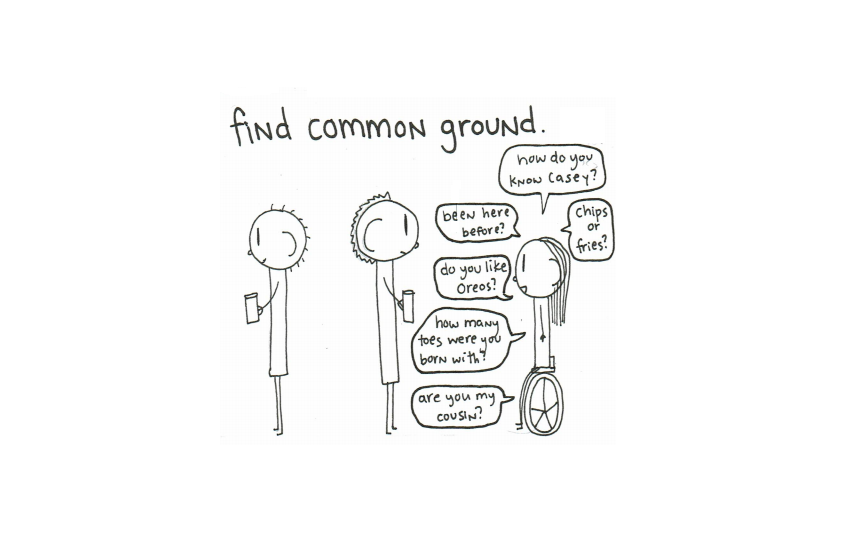 find common ground.
how do you
know Casey?
been here
before?
chips
or
fries?
do you like
Oreos?
how many
toes were you
born with?
are you my
cousin?